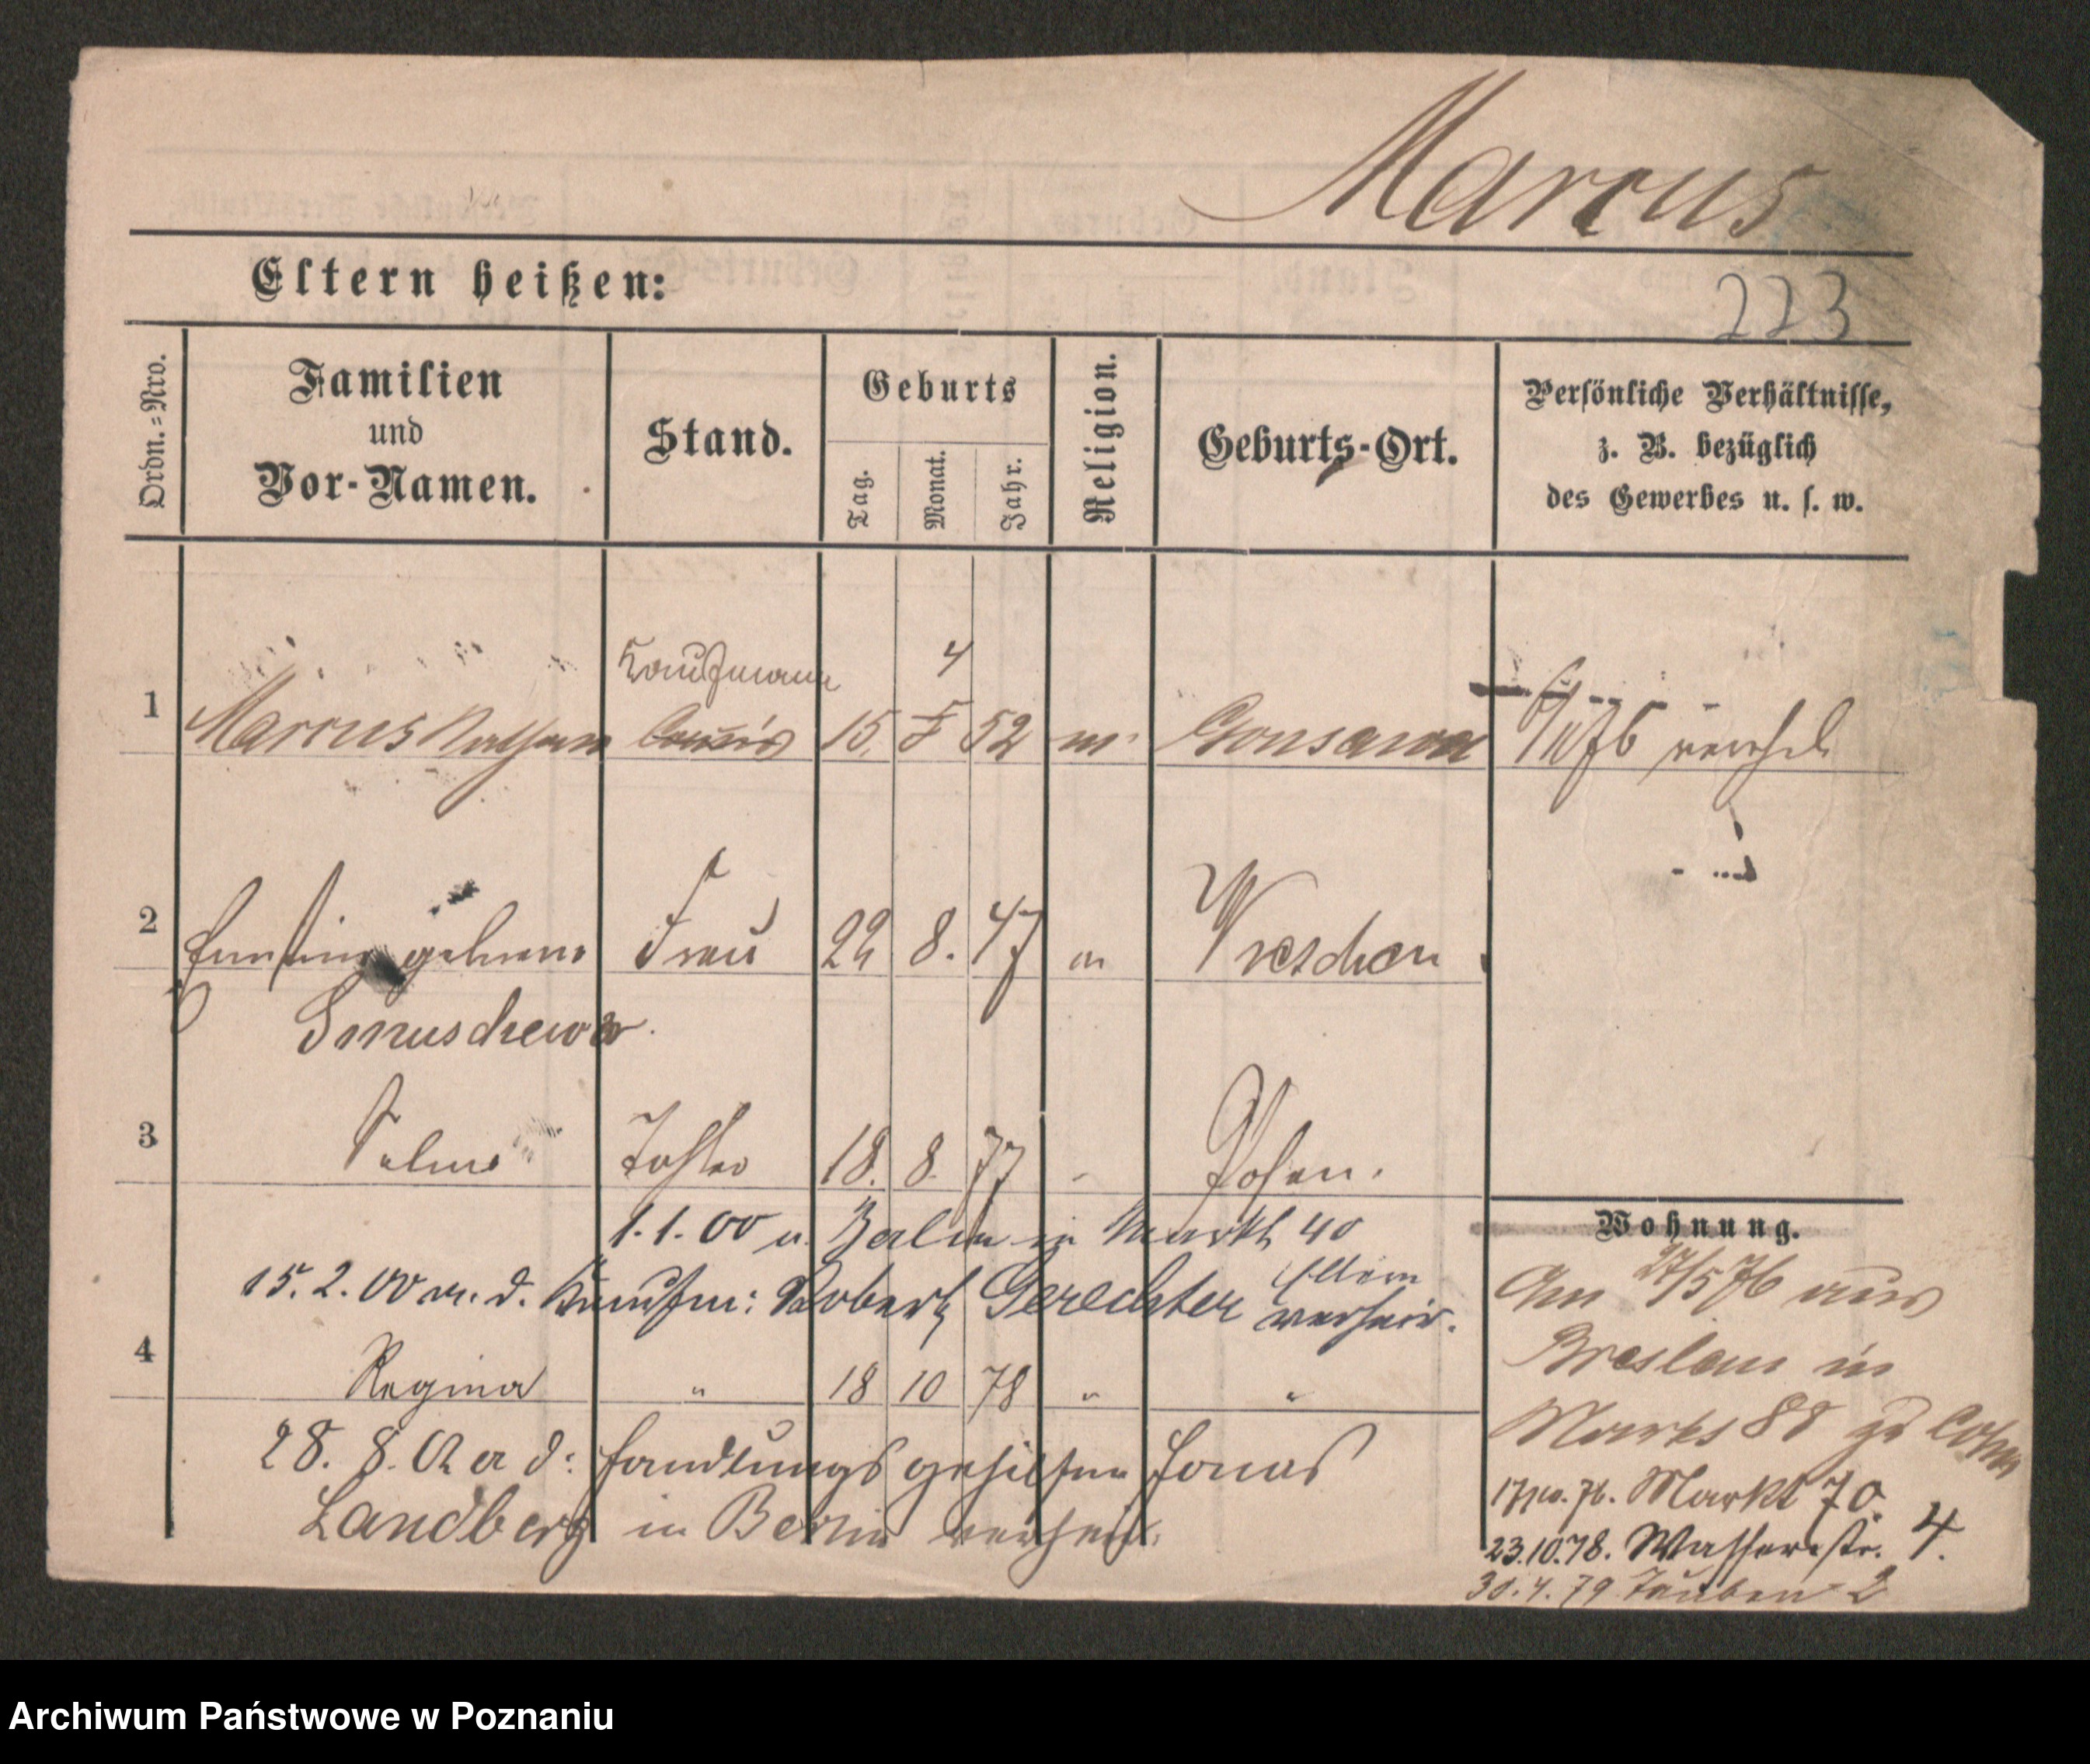 Marcus
Eltern heißen:
223
Ordn.=Nro.
Familien
und
Vor-Namen.
Stand.
Geburts
Tag.
Monat.
Jahr.
Religion.
Geburts-Ort.
Persönliche Verhältnisse,
z. B. bezüglich
des Gewerbes u. s. w.
Kaufmann
4
1 Marcus Nathan Commis 15. 5 52 m Gonsawa /76
2 geborene Frau 22 8. 47 m Wreschen
Smuschewer.
3 Selma Tochter 18. 8. 77 " Posen.
1.1.00 n. Berlin in Markt 40
15.2.00 m. d. Kaufm: Robert Gerechter verheir.
4 Regina " 18 10 78 " "
28. 8. 02 a d: Handlungsgehilfen Jonas
Landberg in Berlin verheir.
Wohnung.
Am 27/5 76 aus
Breslau in
Markt 88 zu Cohn
17/10.76. Markt 70.
23.10.78. Wasserstr. 4.
30.4.79 Tauben 2
Archiwum Państwowe w Poznaniu